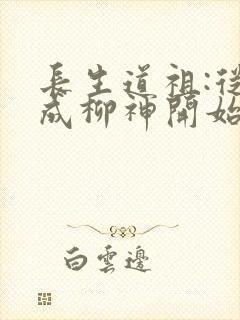 長生道祖:從
成柳神開始
白雲邊